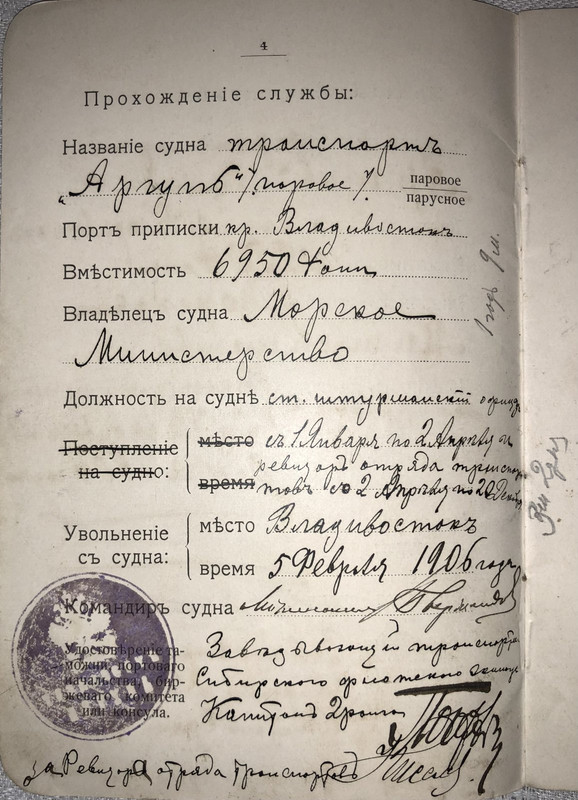 4
Прохожденіе службы:
Названіе судна транспортъ
„Аргунь“ /паровое/. паровое
парусное
Портъ приписки кр. Владивостокъ
Вмѣстимость 6950 тонн
Владѣлецъ судна Морское
Министерство
Должность на суднѣ ст. штурманскій офицеръ
Поступленіе мѣсто съ 1 Января по 2 Апрѣля и
на судно: ревизоръ отряда транспор
время товъ съ 2 Апрѣля по 20 Декабр
Увольненіе мѣсто Владивостокъ
съ судна:
время 5 Февраля 1906 годъ
Командиръ судна
Удостовѣреніе та-
можни, портоваго
начальства, бир-
жеваго комитета
или консула.
Завѣдывающій транспорта
Сибирского флотского экипаж
Капитанъ 2 ранга
за Ревизора отряда транспортовъ
1 годъ 9 м.